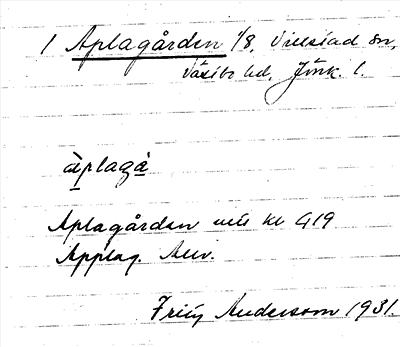 1 Aplagården 1/8, Villstad sn,
Västbo hd, Jönk. l.
aplagå
Aplagården kl 419
Applag.
Andersson 1931.